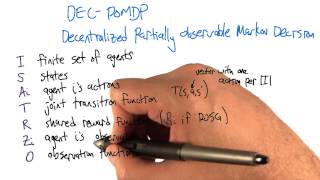 DEC-POMDP
Decentralized Partially observable Markov Decision
I finite set of agents
S states
Ai agent i's actions
T joint transition function T(s,a,s') vector with one action per |I|
R shared reward function (Ri if POSG)
Zi agent i's
O observation function